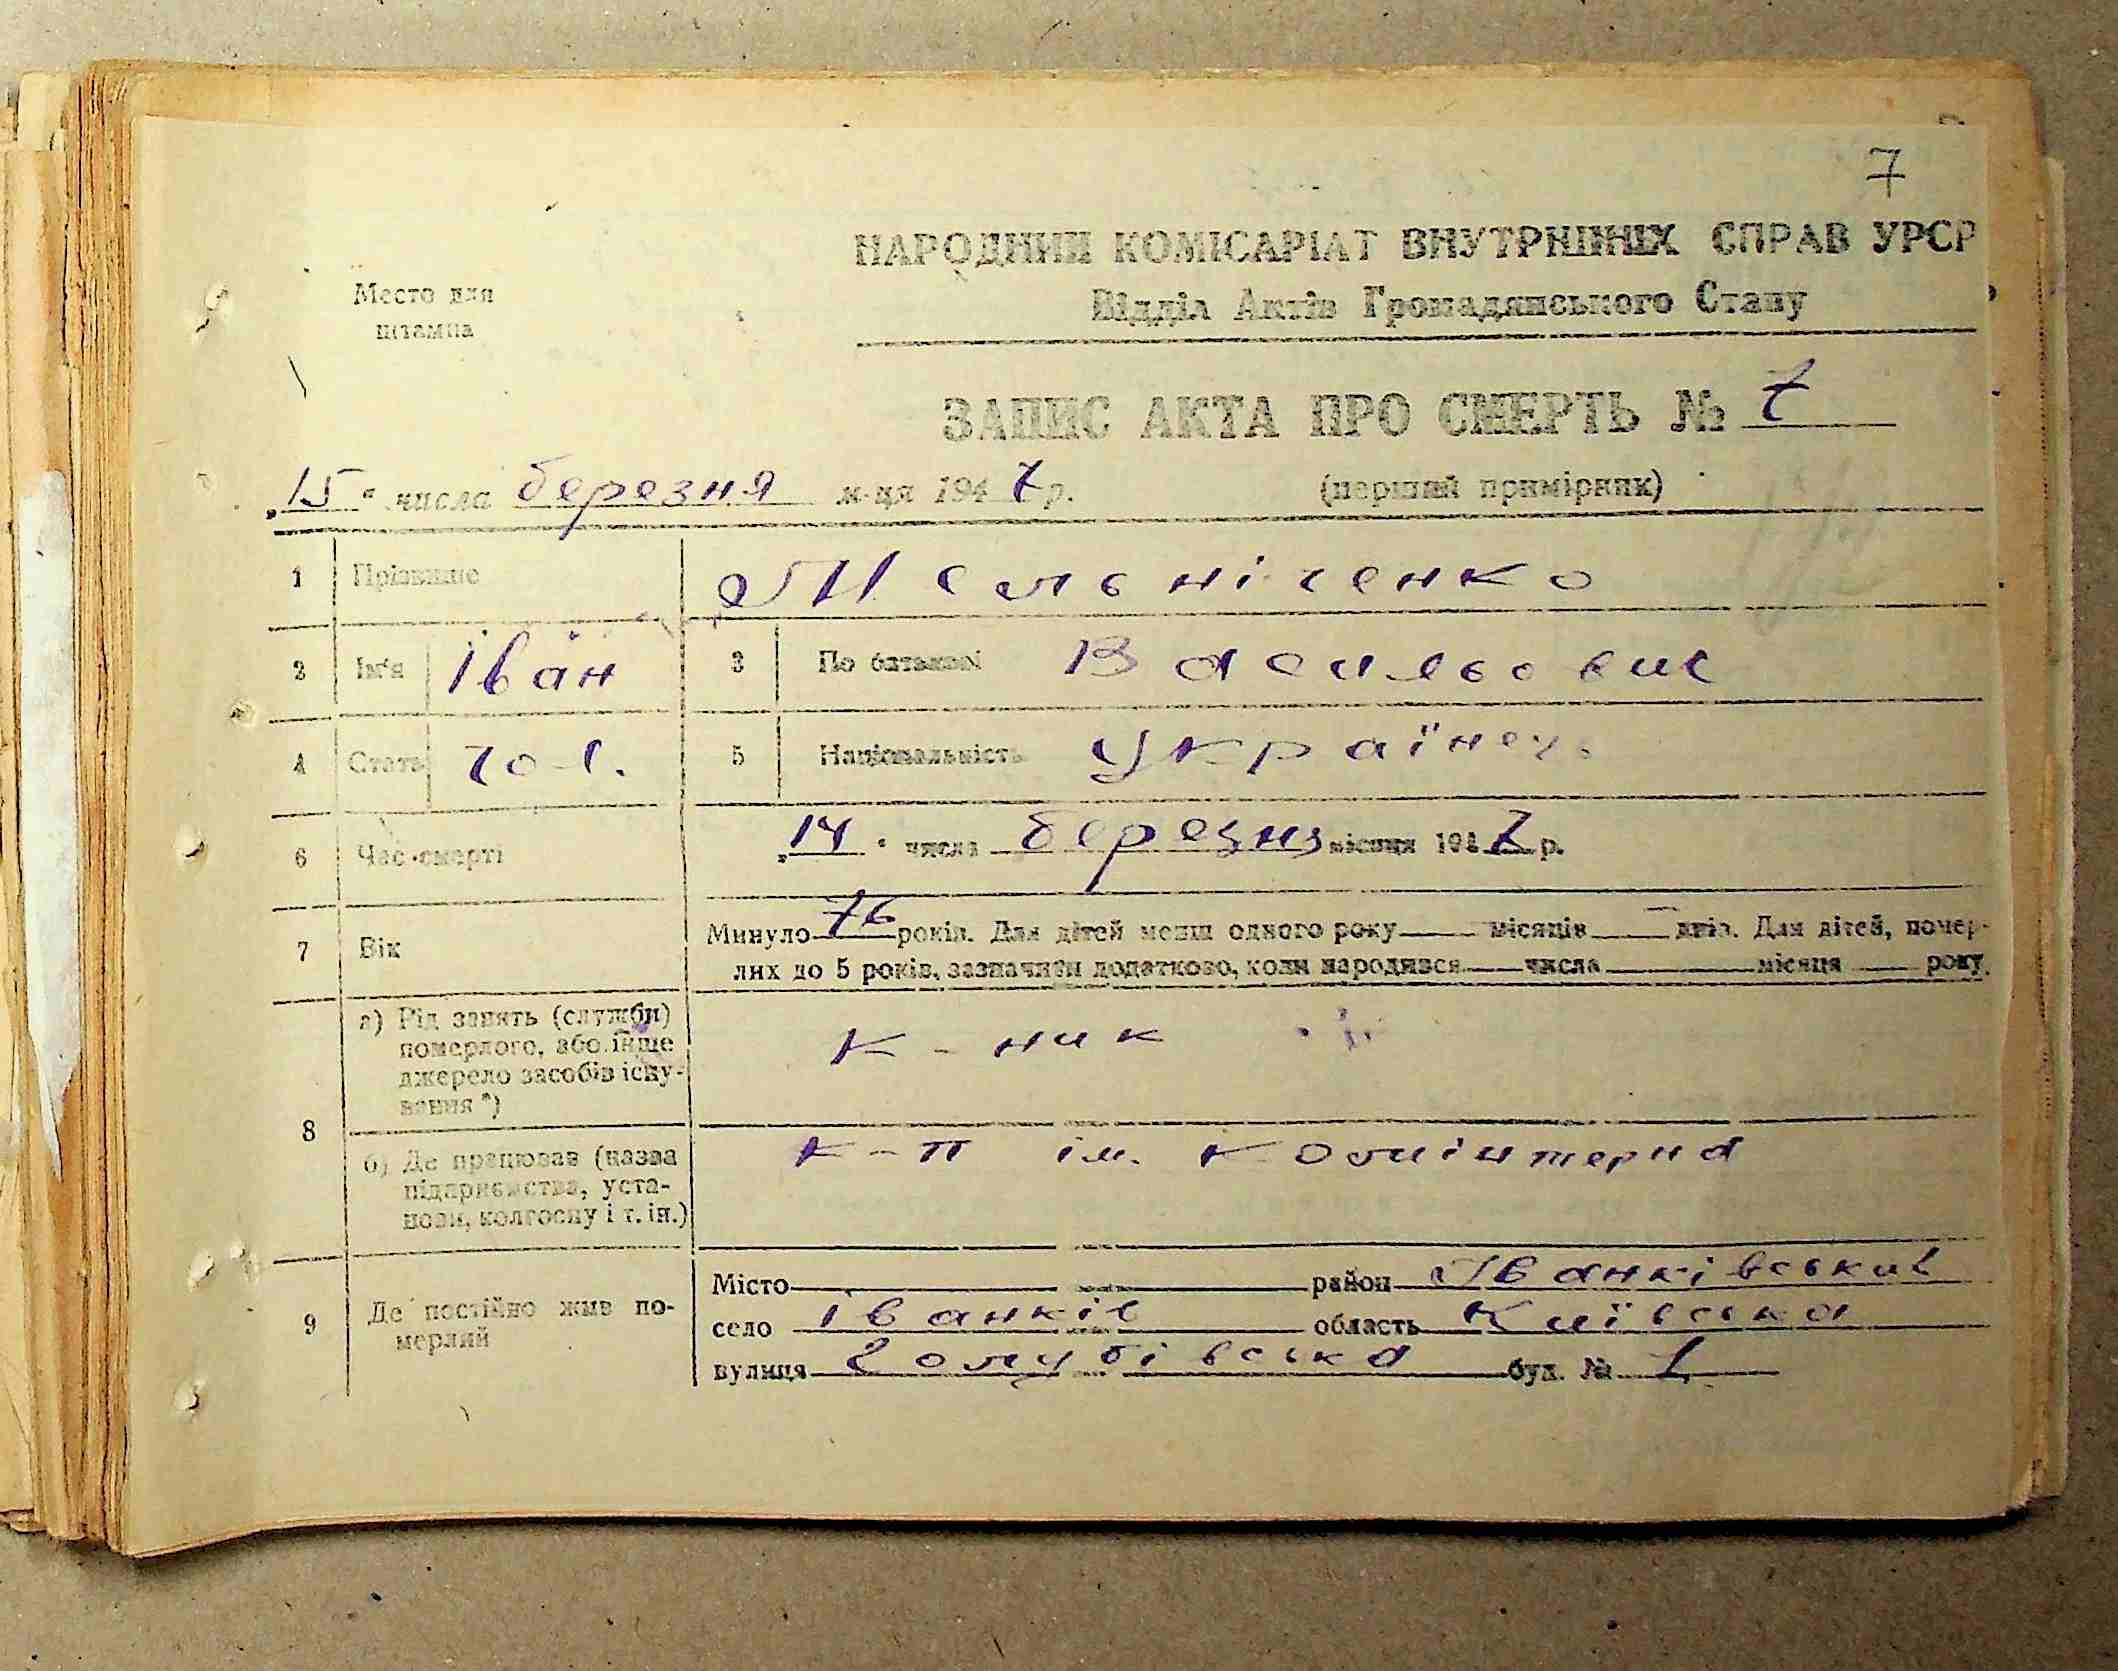 7
Место для
штампа
НАРОДНИЙ КОМІСАРІАТ ВНУТРІШНІХ СПРАВ УРСР
Відділ Актів Громадянського Стану
ЗАПИС АКТА ПРО СМЕРТЬ № 7
„15“ числа березня м-ця 1947 р. (перший примірник)
1 Прізвище Мельніченко
2 Ім'я Іван 3 По батькові Васильович
4 Стать чол. 5 Національність Українець
6 Час смерті „14“ числа березня місяця 1947 р.
7 Вік Минуло 76 років. Для дітей менш одного року — місяців — днів. Для дітей, помер-
лих до 5 років, зазначити додатково, коли народився — числа — місяця — року.
8 а) Рід занять (служби)
померлого, або інше
джерело засобів існу-
вання *)
к-ник
б) Де працював (назва
підприємства, уста-
нови, колгоспу і т. ін.)
к-п ім. Комінтерна
9 Де постійно жив по-
мерлий
Місто — район Іванківський
село Іванків область Київська
вулиця Голубівська буд. № 1